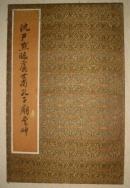 沈尹默臨虞世南孔子廟堂碑